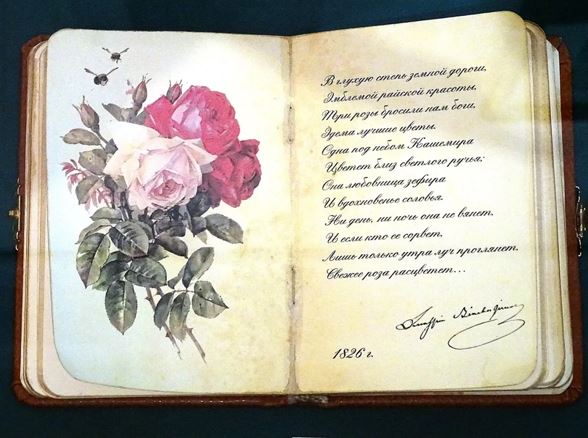 В глухую степь земной дороги,
Эмблемой райской красоты,
Три розы бросили нам боги,
Эдема лучшие цветы.
Одна под небом Кашемира
Цветет близ светлого ручья:
Она любовница зефира
И вдохновенье соловья.
Ни день, ни ночь она не вянет,
И если кто ее сорвет,
Лишь только утра луч проглянет,
Свежее роза расцветет...
1826 г.